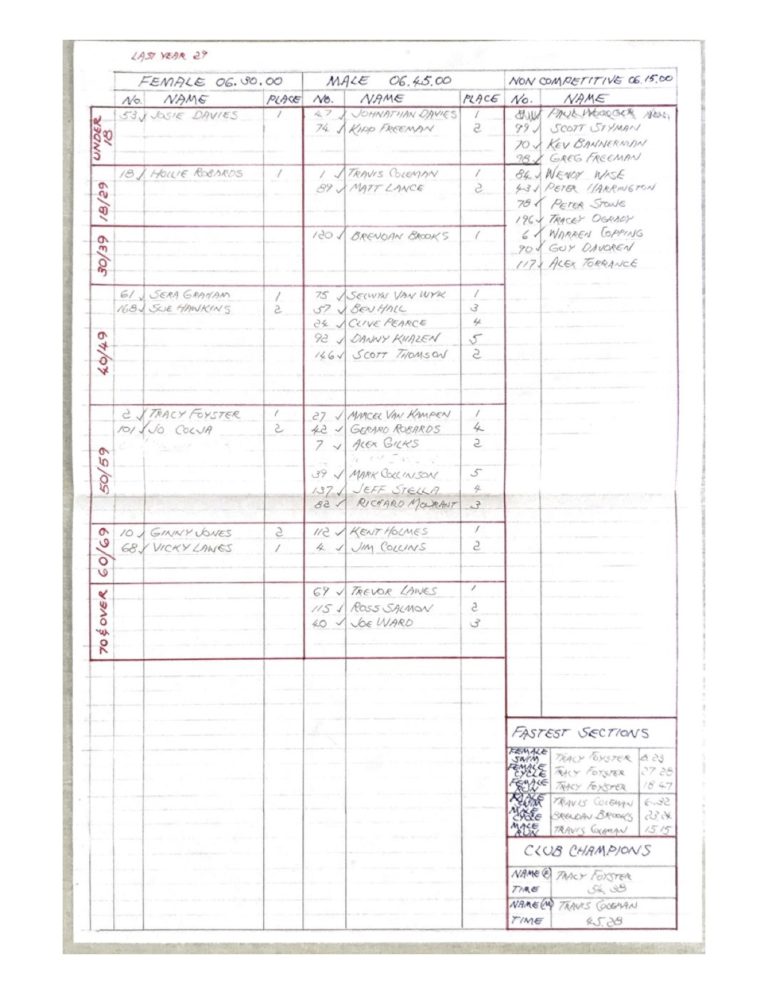 LAST YEAR 29
FEMALE 06.30.00 MALE 06.45.00 NON COMPETITIVE 06.15.00
No. NAME PLACE No. NAME PLACE No. NAME
UNDER 18
53 JOSIE DAVIES 1 47 JOHNATHAN DAVIES 1 PAUL
74 KIDD FREEMAN 2 99 SCOTT STYMAN
70 KEV BANNERMAN
98 GREG FREEMAN
18/29
18 HOLLIE ROBARDS 1 1 TRAVIS COLEMAN 1 84 WENDY WISE
89 MATT LANCE 2 431 PETER HARRINGTON
78 PETER STONE
196 TRACEY OGRADY
30/39
120 BRENDAN BROOKS 1 6 WARREN COPPING
90 GUY DAVOREN
117 ALEX TORRANCE
40/49
61 SERA GRAHAM 1 75 SELWYN VAN WYK 1
168 SUE HAWKINS 2 57 BEN HALL 3
24 CLIVE PEARCE 4
92 DANNY KHAZEN 5
146 SCOTT THOMSON 2
50/59
2 TRACY FOYSTER 1 27 MARCEL VAN KAMPEN 1
101 JO COLJA 2 42 GERARD ROBARDS 4
7 ALEX GILKS 2
39 MARK COLLINSON 5
137 JEFF STELLA 4
82 RICHARD MOURANT 3
60/69
10 GINNY JONES 2 112 KENT HOLMES 1
68 VICKY LAWES 1 4 JIM COLLINS 2
70 & OVER
69 TREVOR LAWES 1
115 ROSS SALMON 2
40 JOE WARD 3
FASTEST SECTIONS
FEMALE SWIM TRACY FOYSTER
FEMALE CYCLE TRACY FOYSTER 27 28
FEMALE RUN TRACY FOYSTER 18 47
MALE SWIM TRAVIS COLEMAN 6.32
MALE CYCLE BRENDAN BROOKS
MALE RUN TRAVIS COLEMAN 15 15
CLUB CHAMPIONS
NAME (F) TRACY FOYSTER
TIME
NAME (M) TRAVIS COLEMAN
TIME 45.28